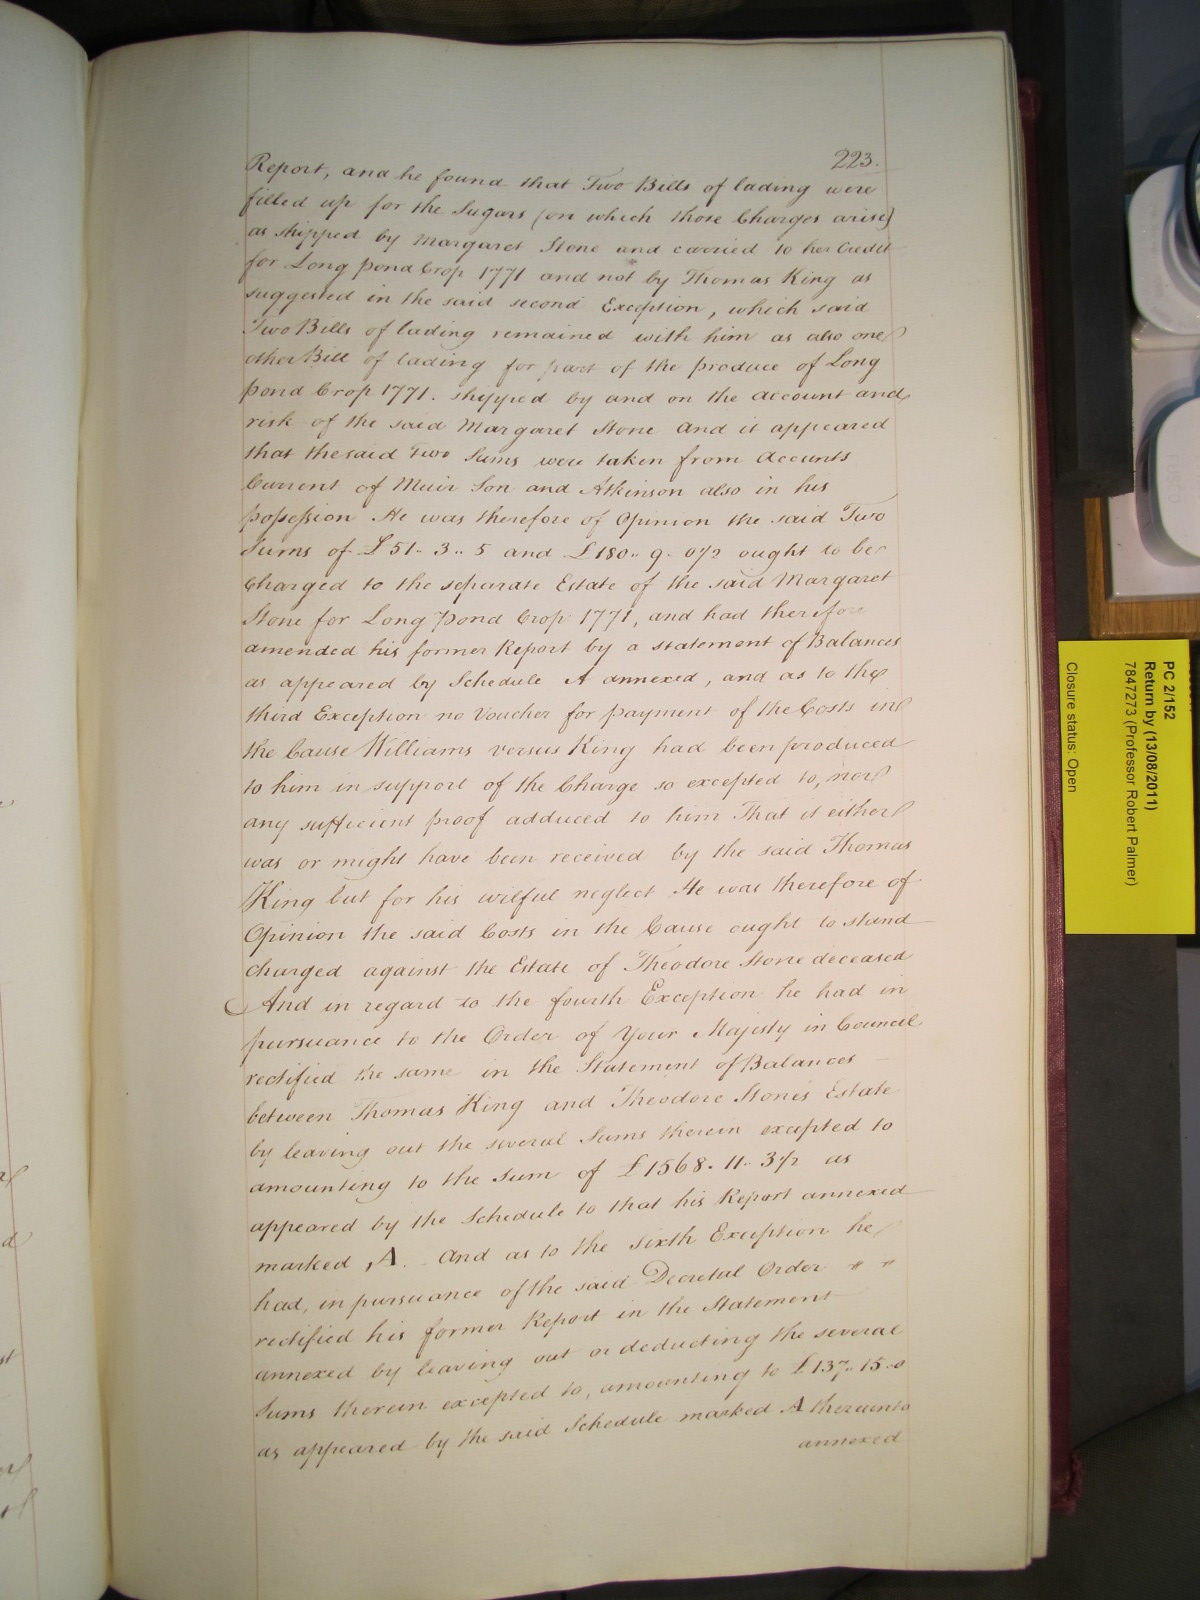 223.
Report, and he found that Two Bills of lading were
filled up for the Sugars (on which those Charges arise)
as shipped by Margaret Stone and carried to her Credit
for Long pond Crop 1771 and not by Thomas King as
suggested in the said second Exception, which said
Two Bills of lading remained with him as also one
other Bill of lading for part of the produce of Long
pond Crop 1771. shipped by and on the account and
risk of the said Margaret Stone And it appeared
that the said Two Sums were taken from Accounts
Current of Muir Son and Atkinson also in his
possession He was therefore of Opinion the said Two
Sums of £51.. 3.. 5 and £180.. 9.. 0½ ought to be
Charged to the separate Estate of the said Margaret
Stone for Long pond Crop 1771, and had therefore
amended his former Report by a statement of Balances
as appeared by Schedule A annexed, and as to the
third Exception no Voucher for payment of the Costs in
the Cause Williams versus King had been produced
to him in support of the Charge so excepted to, nor
any sufficient proof adduced to him That it either
was or might have been received by the said Thomas
King but for his wilful neglect He was therefore of
Opinion the said Costs in the Cause ought to stand
charged against the Estate of Theodore Stone deceased
And in regard to the fourth Exception he had in
pursuance to the Order of Your Majesty in Council
rectified the same in the Statement of Balances –
between Thomas King and Theodore Stone's Estate
by leaving out the several Sums therein excepted to
amounting to the Sum of £1568. 11.. 3½ as
appeared by the Schedule to that his Report annexed
marked A. And as to the sixth Exception he
had, in pursuance of the said Decretal Order " "
rectified his former Report in the Statement
annexed by leaving out or deducting the several
Sums therein excepted to, amounting to £137.. 15..0
as appeared by the said Schedule marked A thereunto
annexed
PC 2/152
Return by (13/08/2011)
7847273 (Professor Robert Palmer)
Closure status: Open